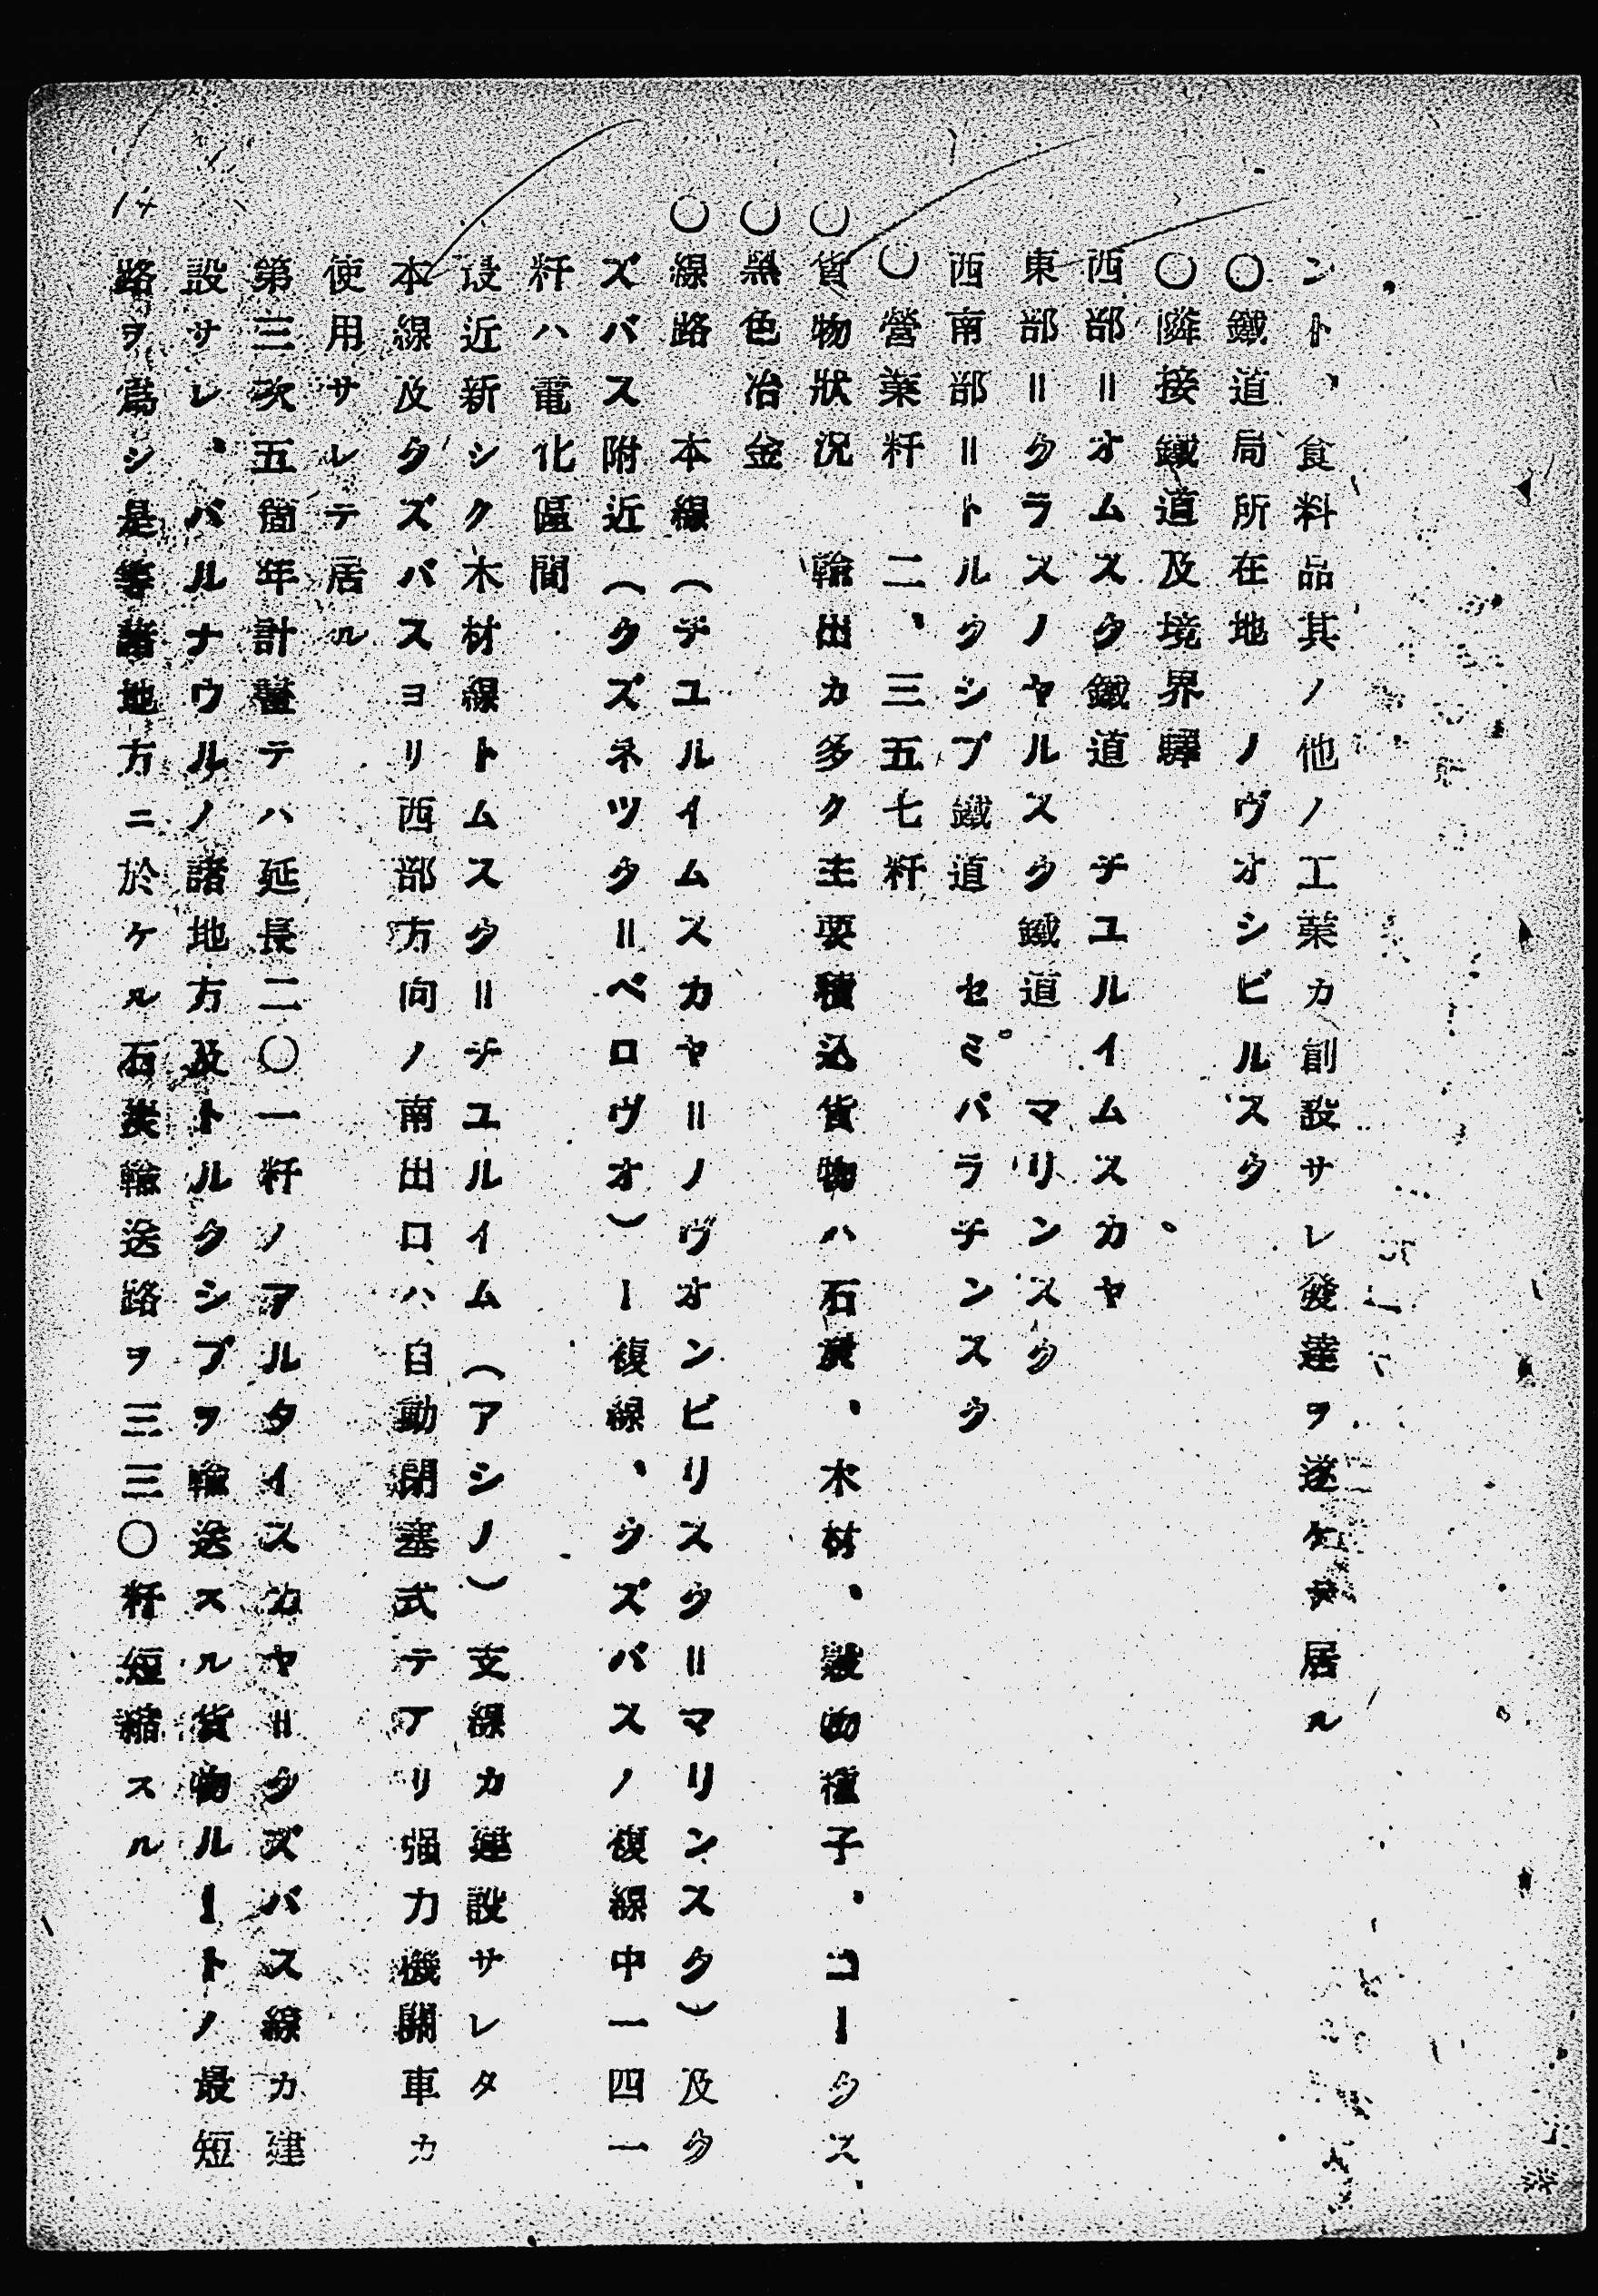 ント、食料品其ノ他ノ工業カ創設サレ發達ヲ遂ケテ居ル
〇鐵道局所在地 ノヴオシビルスク
〇隣接鐵道及境界驛
西部=オムスク鐵道 チユルイムスカヤ
東部=クラスノヤルスク鐵道 マリンスク
西南部=トルクシブ鐵道 セミパラチンスク
〇營業粁 二、三五七粁
〇貨物狀況 輸出カ多ク主要積込貨物ハ石炭、木材、穀物種子、コークス、
〇黑色冶金
〇線路 本線(チユルイムスカヤ=ノヴオンビリスク=マリンスク)及ク
ズバス附近(クズネツク=ベロヴオ)ー複線、クズバスノ複線中一四一
粁ハ電化區間
最近新シク木材線トムスク=チユルイム(アシノ)支線カ建設サレタ
本線及クズバスヨリ西部方向ノ南出口ハ自動閉塞式テアリ强力機關車カ
使用サレテ居ル
第三次五箇年計畫テハ延長二〇一粁ノアルタイスカヤ=クズバス線カ建
設サレ、バルナウルノ諸地方及トルクシブヲ輸送スル貨物ルートノ最短
路ヲ爲シ是等諸地方ニ於ケル石炭輸送路ヲ三三〇粁短縮スル
14